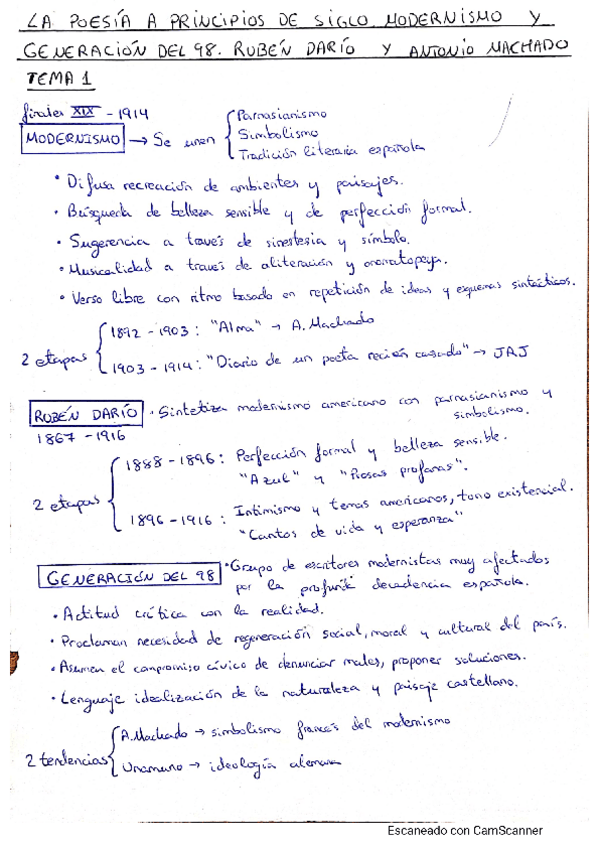 LA POESÍA A PRINCIPIOS DE SIGLO. MODERNISMO Y
GENERACIÓN DEL 98. RUBÉN DARÍO Y ANTONIO MACHADO
TEMA 1
finales XIX - 1914
MODERNISMO → Se unen { Parnasianismo
Simbolismo
Tradición literaria española
• Difusa recreación de ambientes y paisajes.
• Búsqueda de belleza sensible y de perfección formal.
• Sugerencia a través de sinestesia y símbolo.
• Musicalidad a través de aliteración y onomatopeya.
• Verso libre con ritmo basado en repetición de ideas y esquemas sintácticos.
2 etapas { 1892 - 1903: "Alma" → A. Machado
1903 - 1914: "Diario de un poeta recién casado" → JRJ
RUBÉN DARÍO • Sintetiza modernismo americano con parnasianismo y
simbolismo.
1867 - 1916
2 etapas { 1888 - 1896: Perfección formal y belleza sensible.
"Azul" y "Prosas profanas".
1896 - 1916: Intimismo y temas americanos, tono existencial.
"Cantos de vida y esperanza"
GENERACIÓN DEL 98 • Grupo de escritores modernistas muy afectados
por la profunda decadencia española.
• Actitud crítica con la realidad.
• Proclaman necesidad de regeneración social, moral y cultural del país.
• Asumen el compromiso cívico de denunciar males, proponer soluciones.
• Lenguaje idealización de la naturaleza y paisaje castellano.
2 tendencias { A. Machado → simbolismo francés del modernismo
Unamuno → ideología alemana
Escaneado con CamScanner